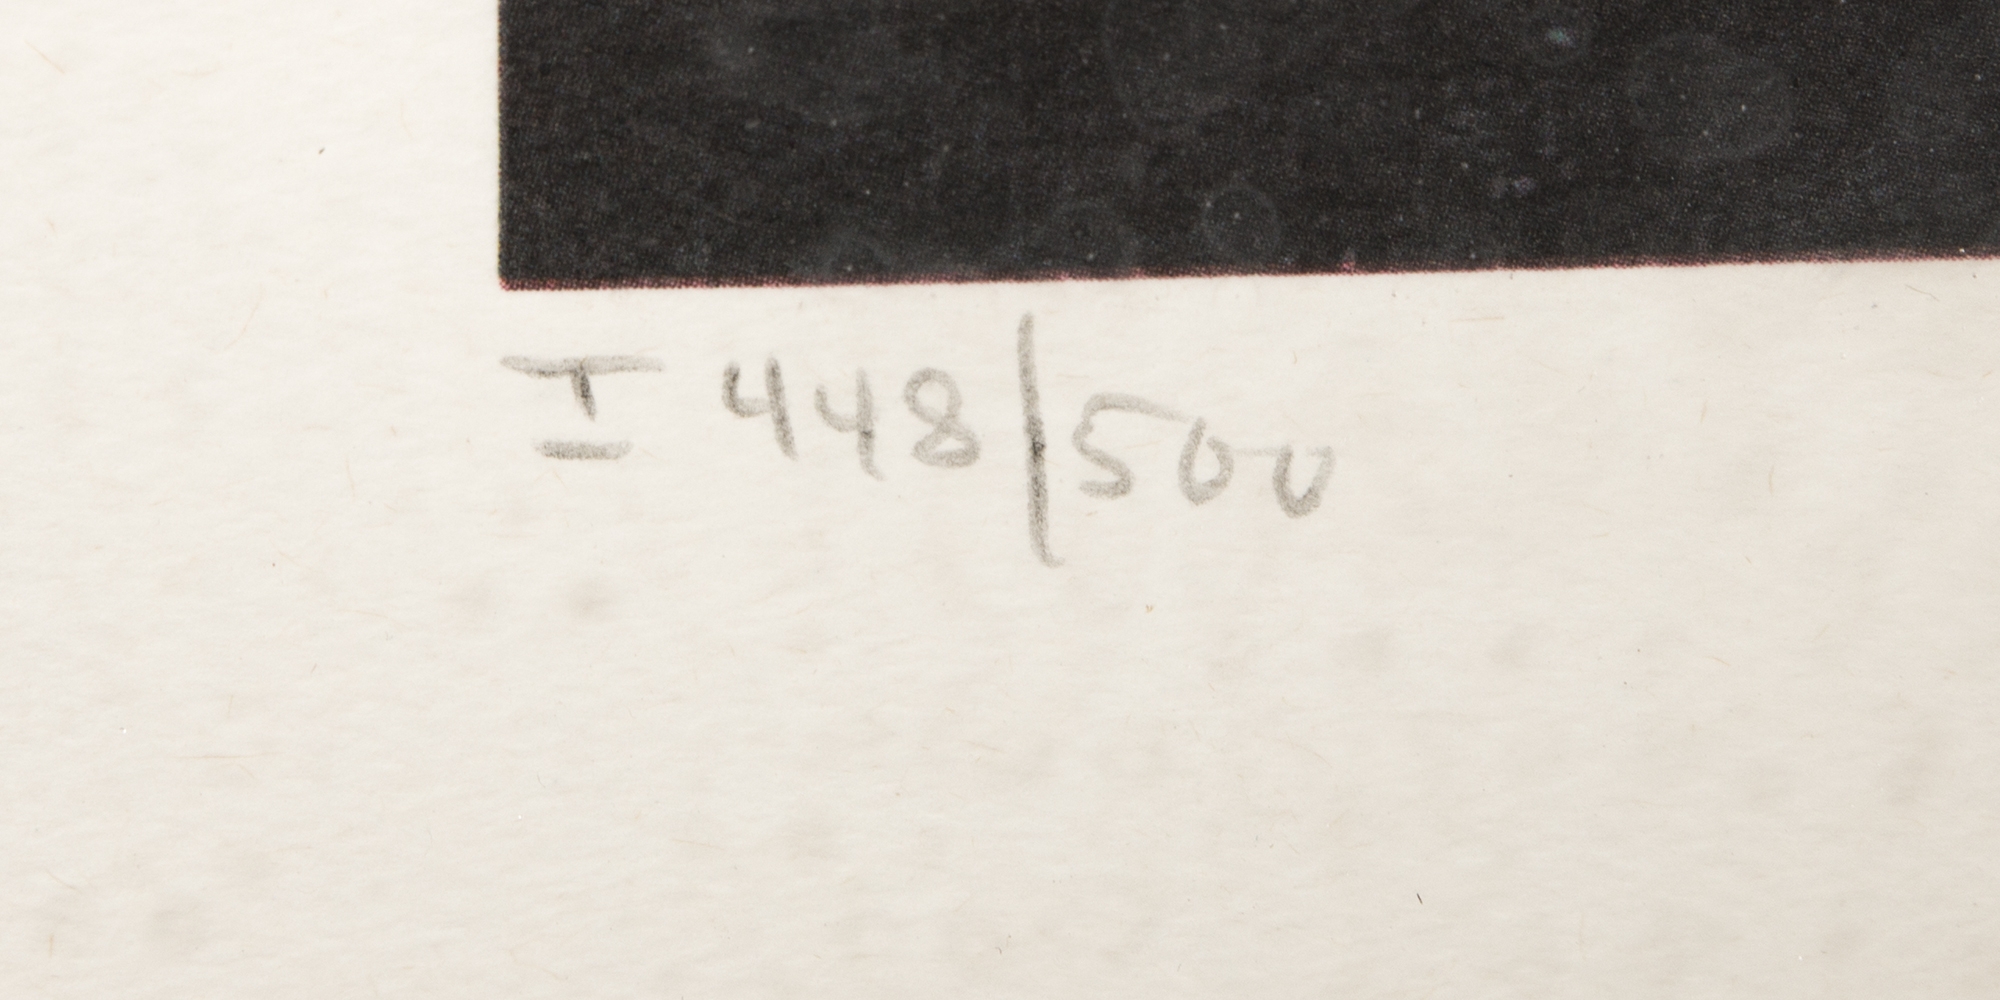 I 448/500